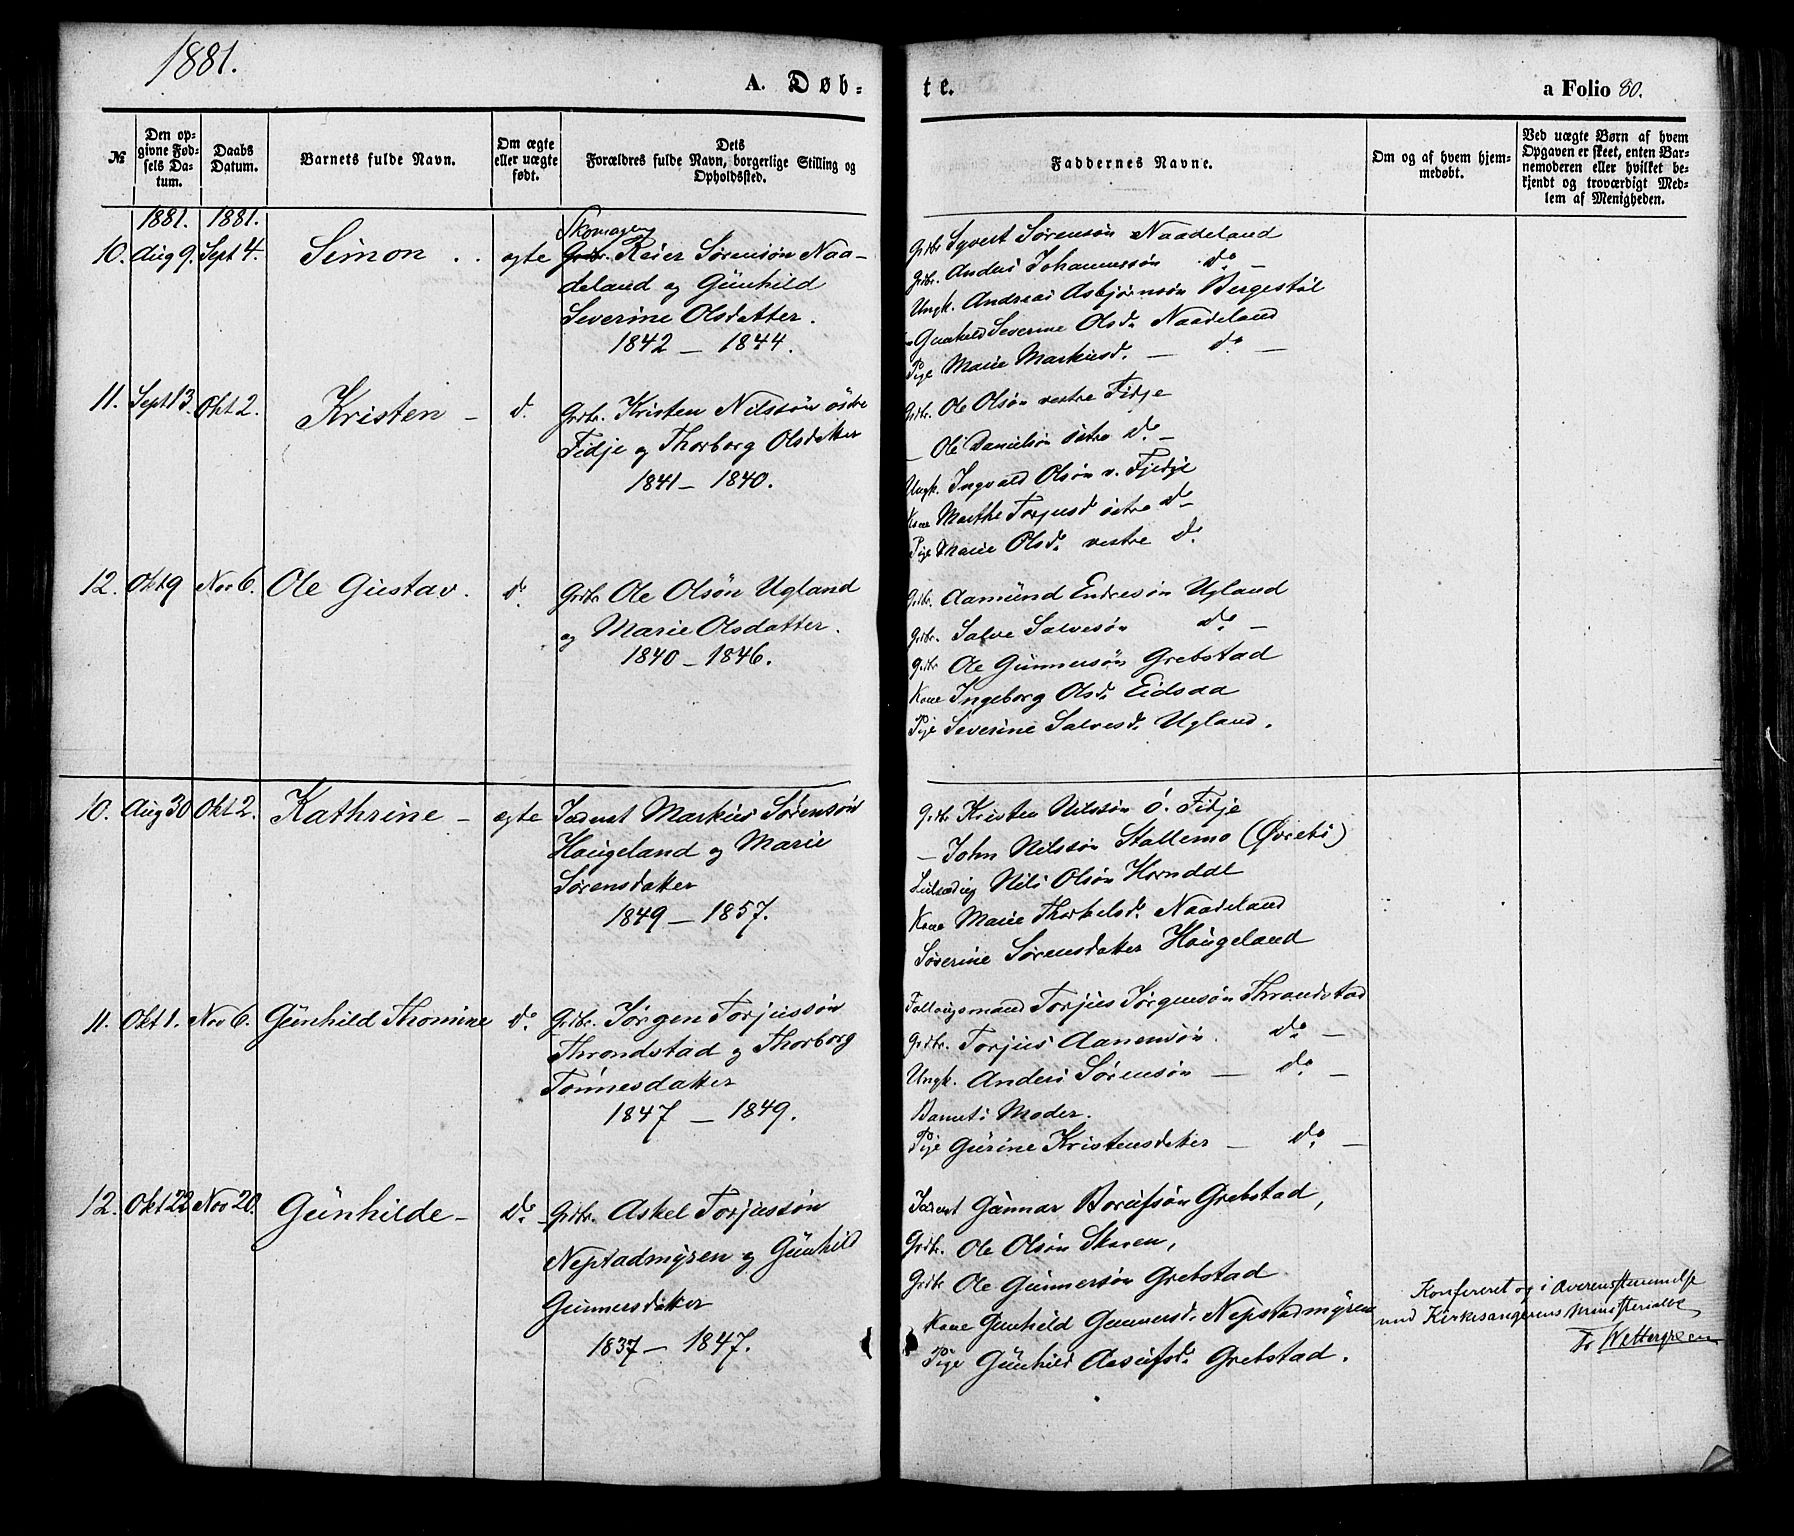 1881.
A. Døb-
te.
a Folio 80.
№
Den op-
givne Fød-
sels Da-
tum.
Daabs
Datum.
Barnets fulde Navn.
Om ægte
eller uægte
født.
Dets
Forældres fulde Navn, borgerlige Stilling og
Opholdssted.
Faddernes Navne.
Om og af hvem hjem-
medøbt.
Ved uægte Børn af hvem
Opgaven er skeet, enten Bar-
nemoderen eller hvilket be-
kjendt og troværdigt Med-
lem af Menigheden.
1881. 1881.
10. Aug 9. Sept 4. Simon . . ægte Grdbr. Reier Sørensøn Naa-
deland og Günhild
Severine Olsdatter.
1842 – 1844.
Grdbr. Syvert Sørensøn Naadeland
Grdbr. Anders Johannessøn do –
Ungk. Andreas Asbjørnsøn Bergestøl
Gunhild Severine Olsd. Naadeland
Pige Marie Markusd. – do –
11. Sept 13. Okt 2. Kristen – do. Grdbr. Kristen Nilssøn östre
Fidje og Thorborg Olsdatter
1841 – 1840.
Grdbr. Ole Olsøn vestre Fidje
– Ole Danielsøn östre do –
Ungk. Ingvald Olsøn v. Fjedje
Kone Marthe Torjusd östre do –
Pige Marie Olsd. vestre do.
12. Okt 9 Nov 6. Ole Gustav. do. Grdbr Ole Olsøn Ugland
og Marie Olsdatter.
1840 – 1846.
Grdbr. Aamünd Endresøn Ugland
Grdbr. Salve Salvesøn do –
Grdbr Ole Günnersøn Grebstad
Kone Ingeborg Olsd. Eidsaa
Pige Severine Salvesd. Ugland.
10. Aug 30 Okt 2. Kathrine – ægte Inderst Markus Sørensøn
Haügeland og Marie
Sørensdatter
1849 – 1857.
Grdbr Kristen Nilssøn ö. Fidje
– John Nilssøn Stallemo (Øvrebø)
Nils Olsøn Horndal
Kone Marie Thorkelsd. Naadeland
Søverine Sørensdatter Haügeland
11. Okt 1. Nov 6. Günhild Thomine do. Grdbr. Jörgen Torjussøn
Throndstad og Thorborg
Tönnesdatter
1847 – 1849.
Torjus Jörgensøn Throndstad
Grdbr. Torjus Aanensøn. do –
Ungk. Anders Sørensøn – do –
Barnets Moder.
Pige Gürine Kristensdatter – do –
12. Okt 22 Nov 20. Günhilde – do. Grdbr. Askel Torjussøn
Nepstadmyren og Günhild
Gunnersdatter
1837 – 1847.
Inderst Günnar Grebstad,
Grdbr. Ole Olsøn Skaren,
Grdbr Ole Günnersøn Grebstad
Kone Gunhild Gunnersd. Nepstadmyren
Pige Günhild Grebstad.
Konfereret og i Overensstemmelse
med Kirkesangerens Ministerialb
Fr Wettergreen